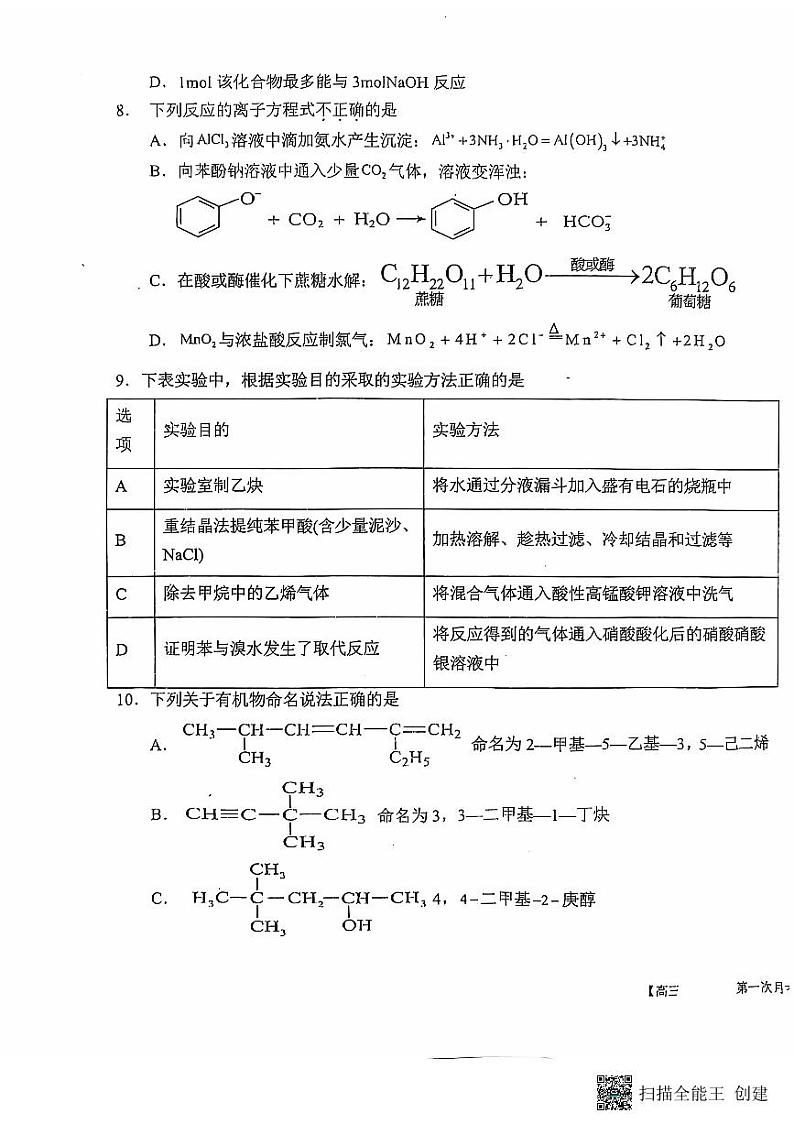 D. 1mol 该化合物最多能与 3molNaOH 反应
8. 下列反应的离子方程式不正确的是
A. 向AlCl₃溶液中滴加氨水产生沉淀：Al³⁺+3NH₃·H₂O=Al(OH)₃↓+3NH₄⁺
B. 向苯酚钠溶液中通入少量CO₂气体，溶液变浑浊：
O⁻ + CO₂ + H₂O ⟶ OH + HCO₃⁻
C. 在酸或酶催化下蔗糖水解：C₁₂H₂₂O₁₁+H₂O 酸或酶⟶ 2C₆H₁₂O₆
蔗糖 葡萄糖
D. MnO₂与浓盐酸反应制氯气：MnO₂+4H⁺+2Cl⁻ ≜ Mn²⁺+Cl₂↑+2H₂O
9. 下表实验中，根据实验目的采取的实验方法正确的是
选项 实验目的 实验方法
A 实验室制乙炔 将水通过分液漏斗加入盛有电石的烧瓶中
B 重结晶法提纯苯甲酸(含少量泥沙、NaCl) 加热溶解、趁热过滤、冷却结晶和过滤等
C 除去甲烷中的乙烯气体 将混合气体通入酸性高锰酸钾溶液中洗气
D 证明苯与溴水发生了取代反应 将反应得到的气体通入硝酸酸化后的硝酸硝酸银溶液中
10. 下列关于有机物命名说法正确的是
A. CH₃—CH—CH=CH—C=CH₂ 命名为2—甲基—5—乙基—3，5—己二烯
CH₃ C₂H₅
CH₃
B. CH≡C—C—CH₃ 命名为3，3—二甲基—1—丁炔
CH₃
CH₃
C. H₃C—C—CH₂—CH—CH₃ 4，4-二甲基-2-庚醇
CH₃ OH
【高三 第一次月
扫描全能王 创建